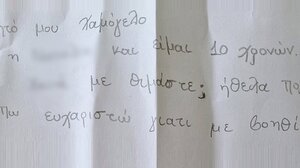 τό μου χαμόγελο
η και είμαι 10 χρονών.
με θυμάστε; ήθελα
ευχαριστώ γιατι με βοηθ